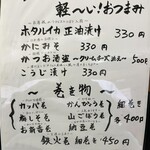 軽〜い!おつまみ
ホタルイカ正油漬け 330円
かにみそ 330円
かつお酒盗 〜クリームチーズ 500円
こうじ漬け 330円
〜巻き物〜
カッパ巻
かんぴょう巻
細巻き
梅しそ巻
山ごぼう巻
各400円
お新香巻
納豆巻
鉄火巻 細巻き ¥450円